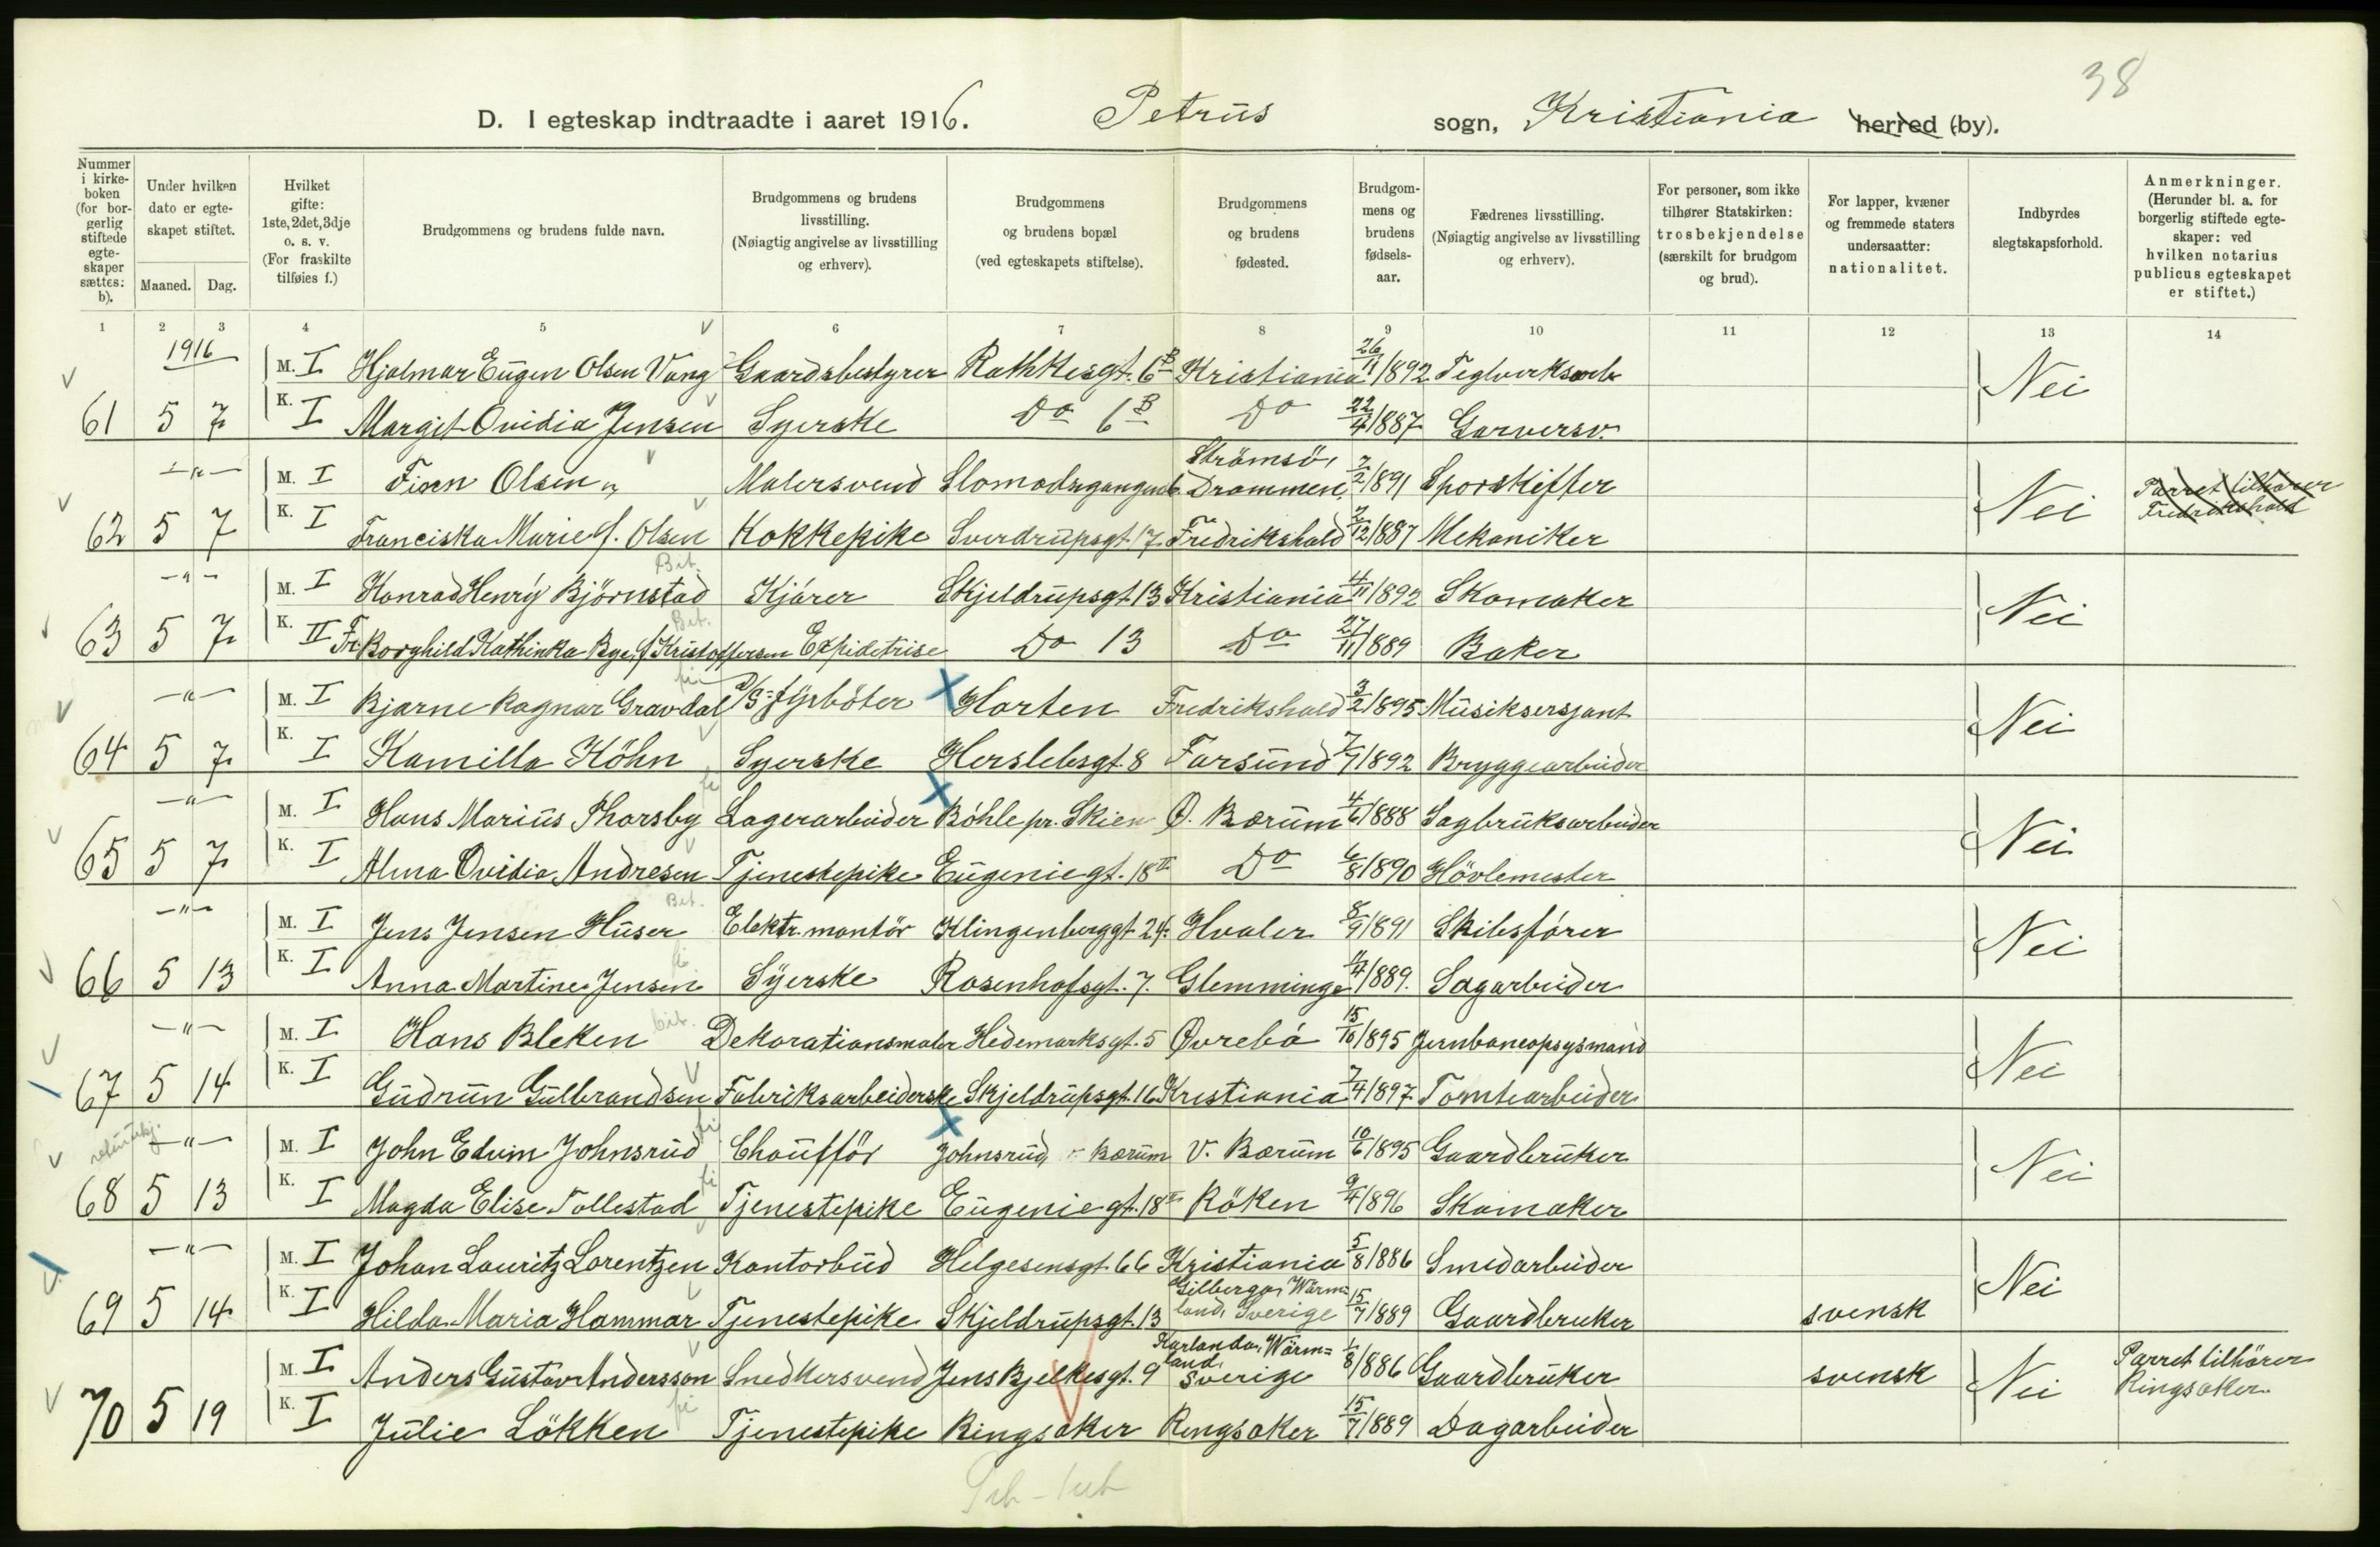 38
D. I egteskap indtraadte i aaret 1916. Petrus sogn, Kristiania herred (by).
Nummer i kirkeboken (for borgerlig stiftede egteskaper sættes: b).
Under hvilken dato er egteskapet stiftet.
Maaned. Dag.
Hvilket gifte: 1ste, 2det, 3dje o. s. v. (For fraskilte tilføies f.)
Brudgommens og brudens fulde navn.
Brudgommens og brudens livsstilling. (Nøiagtig angivelse av livsstilling og erhverv).
Brudgommens og brudens bopæl (ved egteskapets stiftelse).
Brudgommens og brudens fødested.
Brudgommens og brudens fødselsaar.
Fædrenes livsstilling. (Nøiagtig angivelse av livsstilling og erhverv).
For personer, som ikke tilhører Statskirken: trosbekjendelse (særskilt for brudgom og brud).
For lapper, kvæner og fremmede staters undersaatter: nationalitet.
Indbyrdes slegtskapsforhold.
Anmerkninger. (Herunder bl. a. for borgerlig stiftede egteskaper: ved hvilken notarius publicus egteskapet er stiftet.)
1 2 3 4 5 6 7 8 9 10 11 12 13 14
1916 M. I Hjalmar Eugen Olsen Vang Gaardsbestyrer Rathkesgt. 6B Kristiania 26/11 1892 Teglverksarb. Nei
61 5 7 K. I Margit Ovidia Jensen Syerske Do 6B Do 22/4 1887 Garversv.
-"- M. I Olsen Malersvend Strömsö, Drammen, 7/2 1891 Sporskifter Nei Parret tilhører Fredrikshald
62 5 7 K. I Franciska Marie f. Olsen Kokkepike Sverdrupsgt. 17 Fredrikshald 2/12 1887 Mekaniker
-"- M. I Konrad Henry Björnstad Bit. Kjører Skjeldrupsgt. 13 Kristiania 4/11 1892 Skomaker Nei
63 5 7 K. II Fr. Borghild Kathinka Bye, f. Kristoffersen Bit. Expiditrise Do 13 Do 27/11 1889 Baker
-"- M. I Bjarne Ragnar Gravdal D/S fyrböter X Horten Fredrikshald 3/2 1895 Musiksersjant Nei
64 5 7 K. I Kamilla Höhn Syerske Herslebsgt. 8 Farsund 7/7 1892 Bryggearbeider
-"- M. I Hans Marius Thorsby Lagerarbeider X Böhle pr. Skien Ø. Bærum 4/6 1888 Sagbruksarbeider Nei
65 5 7 K. I Alma Ovidia Andresen Tjenestepike Eugeniegt. 18 II Do 6/8 1890 Hövlemester
-"- M. I Jens Jensen Huser Bit. Elektr. montör Klingenberggt. 24 Hvaler 8/9 1891 Skibsfører Nei
66 5 13 K. I Anna Martine Jensen Syerske Rosenhofsgt. 7. Glemminge 11/4 1889. Sagarbeider
-"- M. I Hans Bleken bit. Dekorationsmaler Hedemarksgt. 5 Øvrebø 15/10 1895 Jernbaneopsysmand Nei
67 5 14 K. I Gudrun Gulbrandsen Fabriksarbeiderske Skjeldrupsgt. 16 Kristiania 7/4 1897 Tomtearbeider
-"- M. I John Edvin Johnsrud Chaufför X Johnsrud, Bærum V. Bærum 10/6 1895 Gaardbruker Nei
68 5 13 K. I Magda Elise Tollestad Tjenestepike Eugeniegt. 18 II Röken 9/4 1896 Skomaker
-"- M. I Johan Lauritz Lorentzen Kontorbud Helgesensgt. 66 Kristiania 5/8 1886 Smedarbeider Nei
69 5 14 K. I Hilda Maria Hammar Tjenestepike Skjeldrupsgt. 13 Gilberga, Wärmland, Sverige 15/7 1889 Gaardbruker svensk
M. I Anders Gustav Andersson Snedkersvend Jens Bjelkesgt. 9 Karlanda, Wärmland, Sverige 1/8 1886 Gaardbruker svensk Nei Parret tilhörer Ringsaker
70 5 19 K. I Julie Lökken Tjenestepike Ringsaker Ringsaker 15/7 1889 Dagarbeider